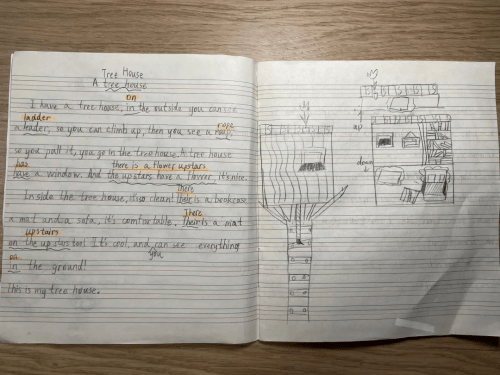 Tree House
A tree house
on
I have a tree house, in the outside you can see
ladder
a leader, so you can climb up, then you see a rope
so you pull it, you go in the tree house. A tree house
has there is a flower upstairs
have a window. And the upstairs have a flower, it's nice.
There
Inside the tree house, it so clean! is a bookcase
There
a mat and a sofa, it's comfortable. Their is a mat
upstairs
on the up stair too! It's cool, and can see everything
on you
in the ground!
This is my tree house.
up
down